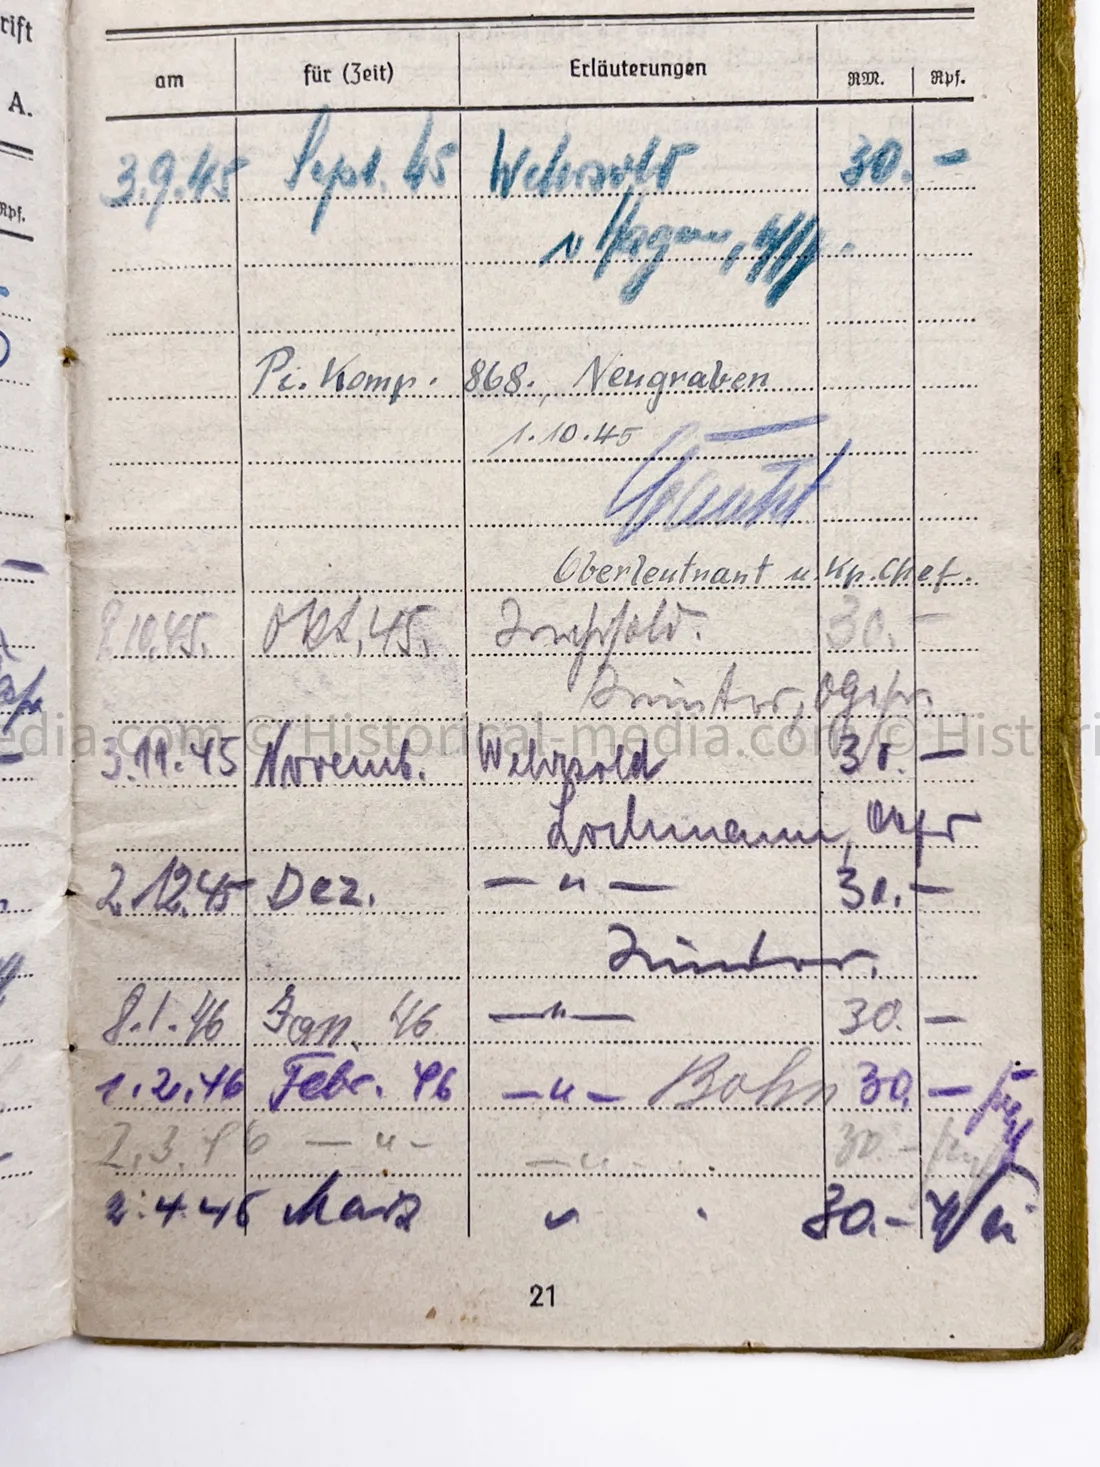 rift
A.
Rpf.
am für (Zeit) Erläuterungen RM. Rpf.
3.9.45 Sept. 45 Wehrsold 30.–
Pi. Komp. 868., Neugraben
1.10.45
Oberleutnant u. Kp. Chef.
2.10.45. Okt. 45. Wehrsold. 30.–
OGefr.
© Historical-media.com
3.11.45 Novemb. Wehrsold 30.–
Lochmann,
2.12.45 Dez. – " – 30.–
8.1.46 Jan. 46 – " – 30.–
1.2.46 Febr. 46 – " – Bohn 30.–
2.3.46 – " – – " – 30.–
2.4.46 März " 30.–
21